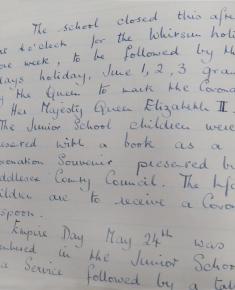 The school closed this after
at 4 o'clock for the Whitsun holi
one week, to be followed by th
days holiday, June 1, 2, 3 gran
by the Queen to mark the Corona
Her Majesty Queen Elizabeth II.
The Junior School children were
presented with a book as a
oronation Souvenir presented by
iddlesex County Council. The Infa
ildren are to receive a Coron
spoon.
Empire Day May 24th was
in the Junior School
a Service followed by a tal